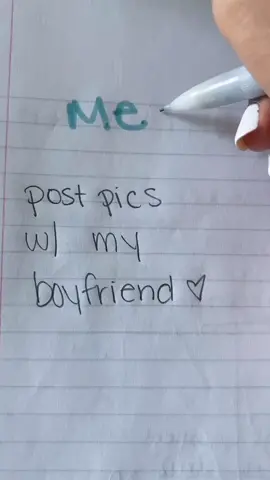 Me
post pics
w/ my
boyfriend ♡